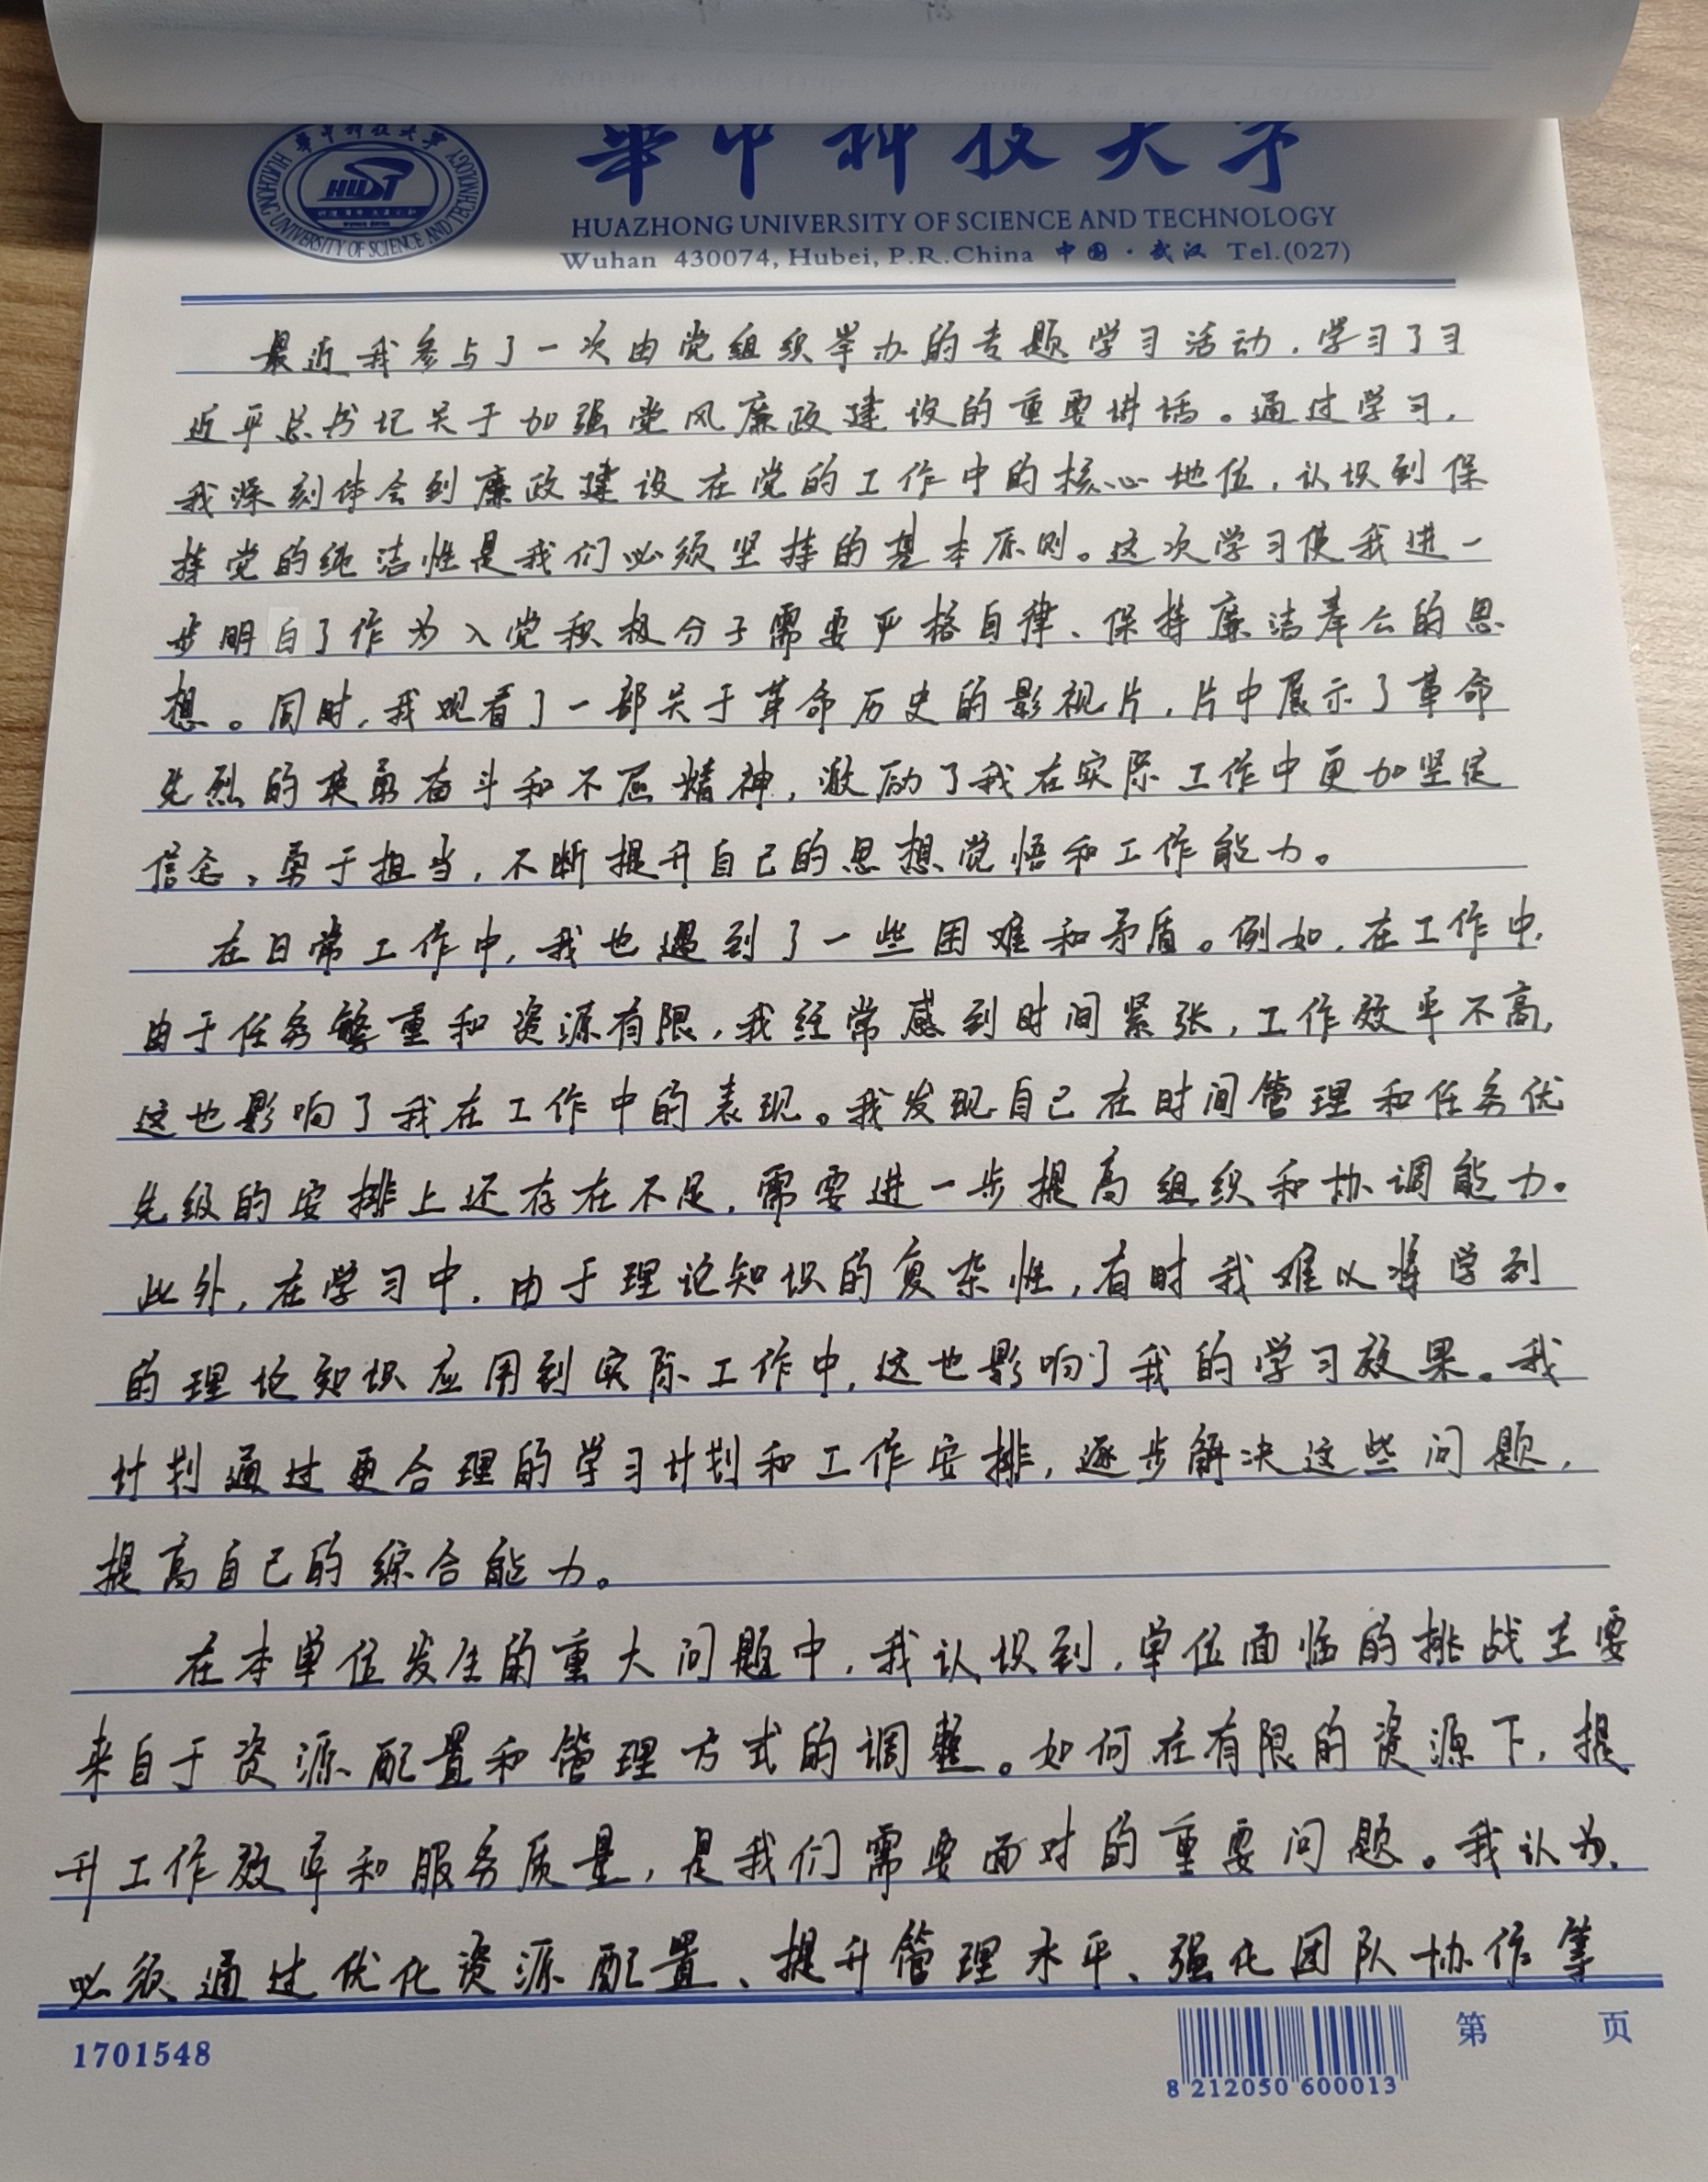 華中科技大学
HUAZHONG UNIVERSITY OF SCIENCE AND TECHNOLOGY
HUST
華中科技大学
HUAZHONG UNIVERSITY OF SCIENCE AND TECHNOLOGY
Wuhan 430074, Hubei, P.R.China 中国·武汉 Tel.(027)
最近我参与了一次由党组织举办的专题学习活动,学习了习
近平总书记关于加强党风廉政建设的重要讲话。通过学习,
我深刻体会到廉政建设在党的工作中的核心地位,认识到保
持党的纯洁性是我们必须坚持的基本原则。这次学习使我进一
步明白了作为入党积极分子需要严格自律、保持廉洁奉公的思
想。同时,我观看了一部关于革命历史的影视片,片中展示了革命
先烈的英勇奋斗和不屈精神,激励了我在实际工作中更加坚定
信念、勇于担当,不断提升自己的思想觉悟和工作能力。
在日常工作中,我也遇到了一些困难和矛盾。例如,在工作中,
由于任务繁重和资源有限,我经常感到时间紧张,工作效率不高,
这也影响了我在工作中的表现。我发现自己在时间管理和任务优
先级的安排上还存在不足,需要进一步提高组织和协调能力。
此外,在学习中,由于理论知识的复杂性,有时我难以将学到
的理论知识应用到实际工作中,这也影响了我的学习效果。我
计划通过更合理的学习计划和工作安排,逐步解决这些问题,
提高自己的综合能力。
在本单位发生的重大问题中,我认识到,单位面临的挑战主要
来自于资源配置和管理方式的调整。如何在有限的资源下,提
升工作效率和服务质量,是我们需要面对的重要问题。我认为,
必须通过优化资源配置、提升管理水平、强化团队协作等
1701548
8 212050 600013
第 页